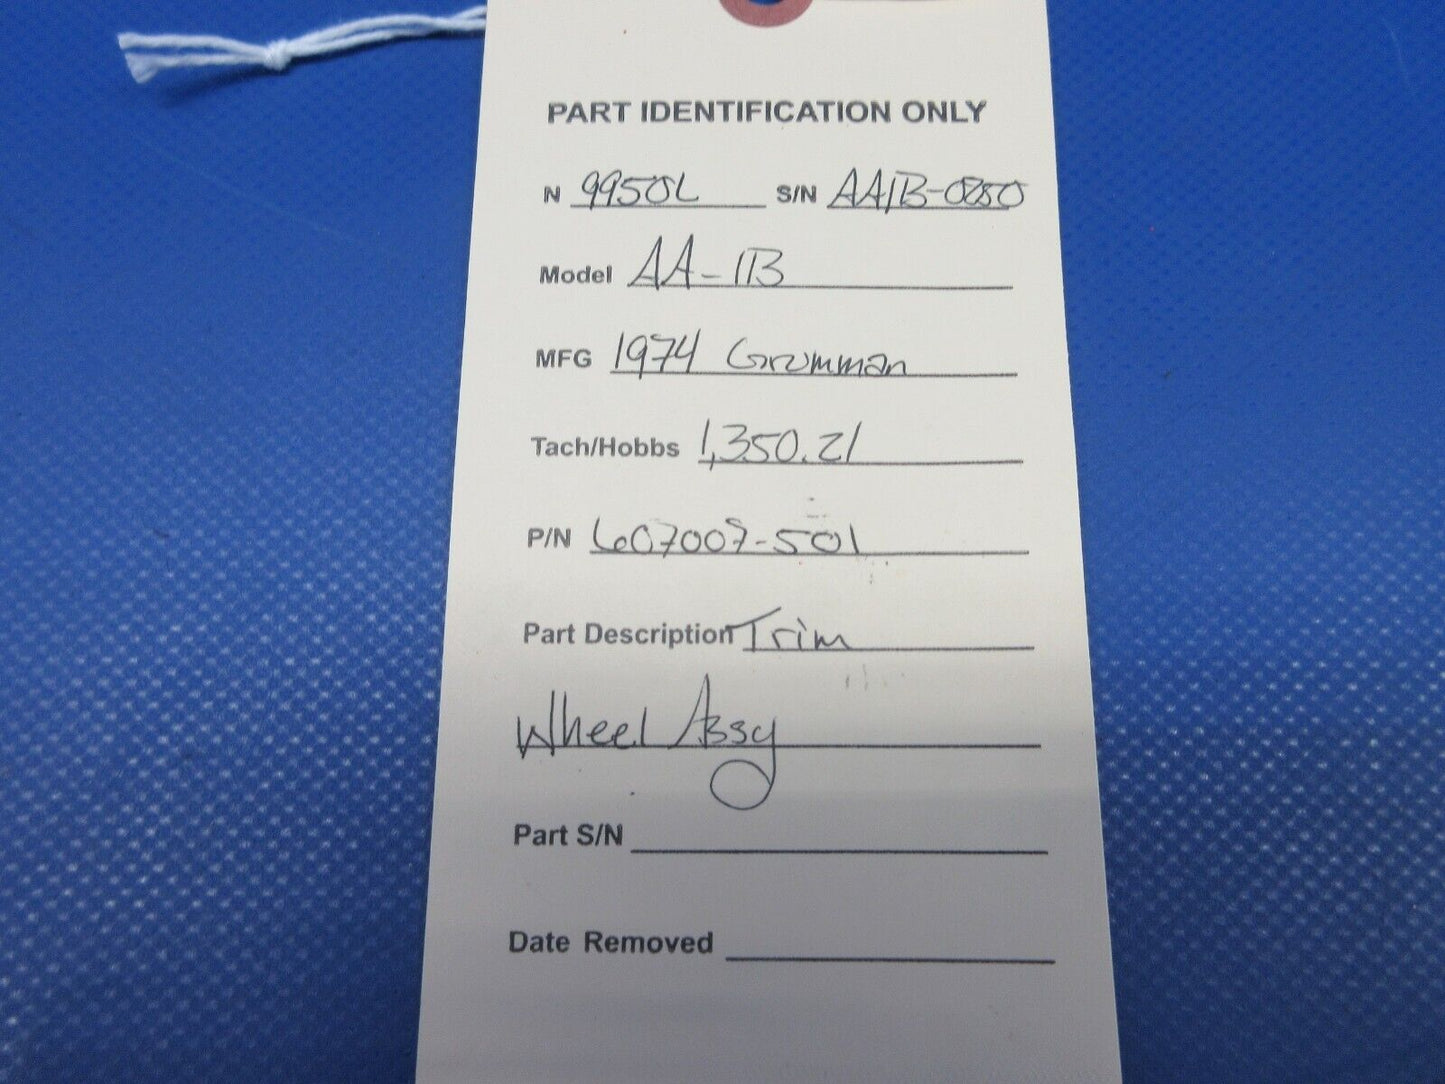 PART IDENTIFICATION ONLY
N 9950L S/N AA1B-0250
Model AA-1B
MFG 1974 Grumman
Tach/Hobbs 1,350.21
P/N 607007-501
Part Description Trim
Wheel Assy
Part S/N
Date Removed